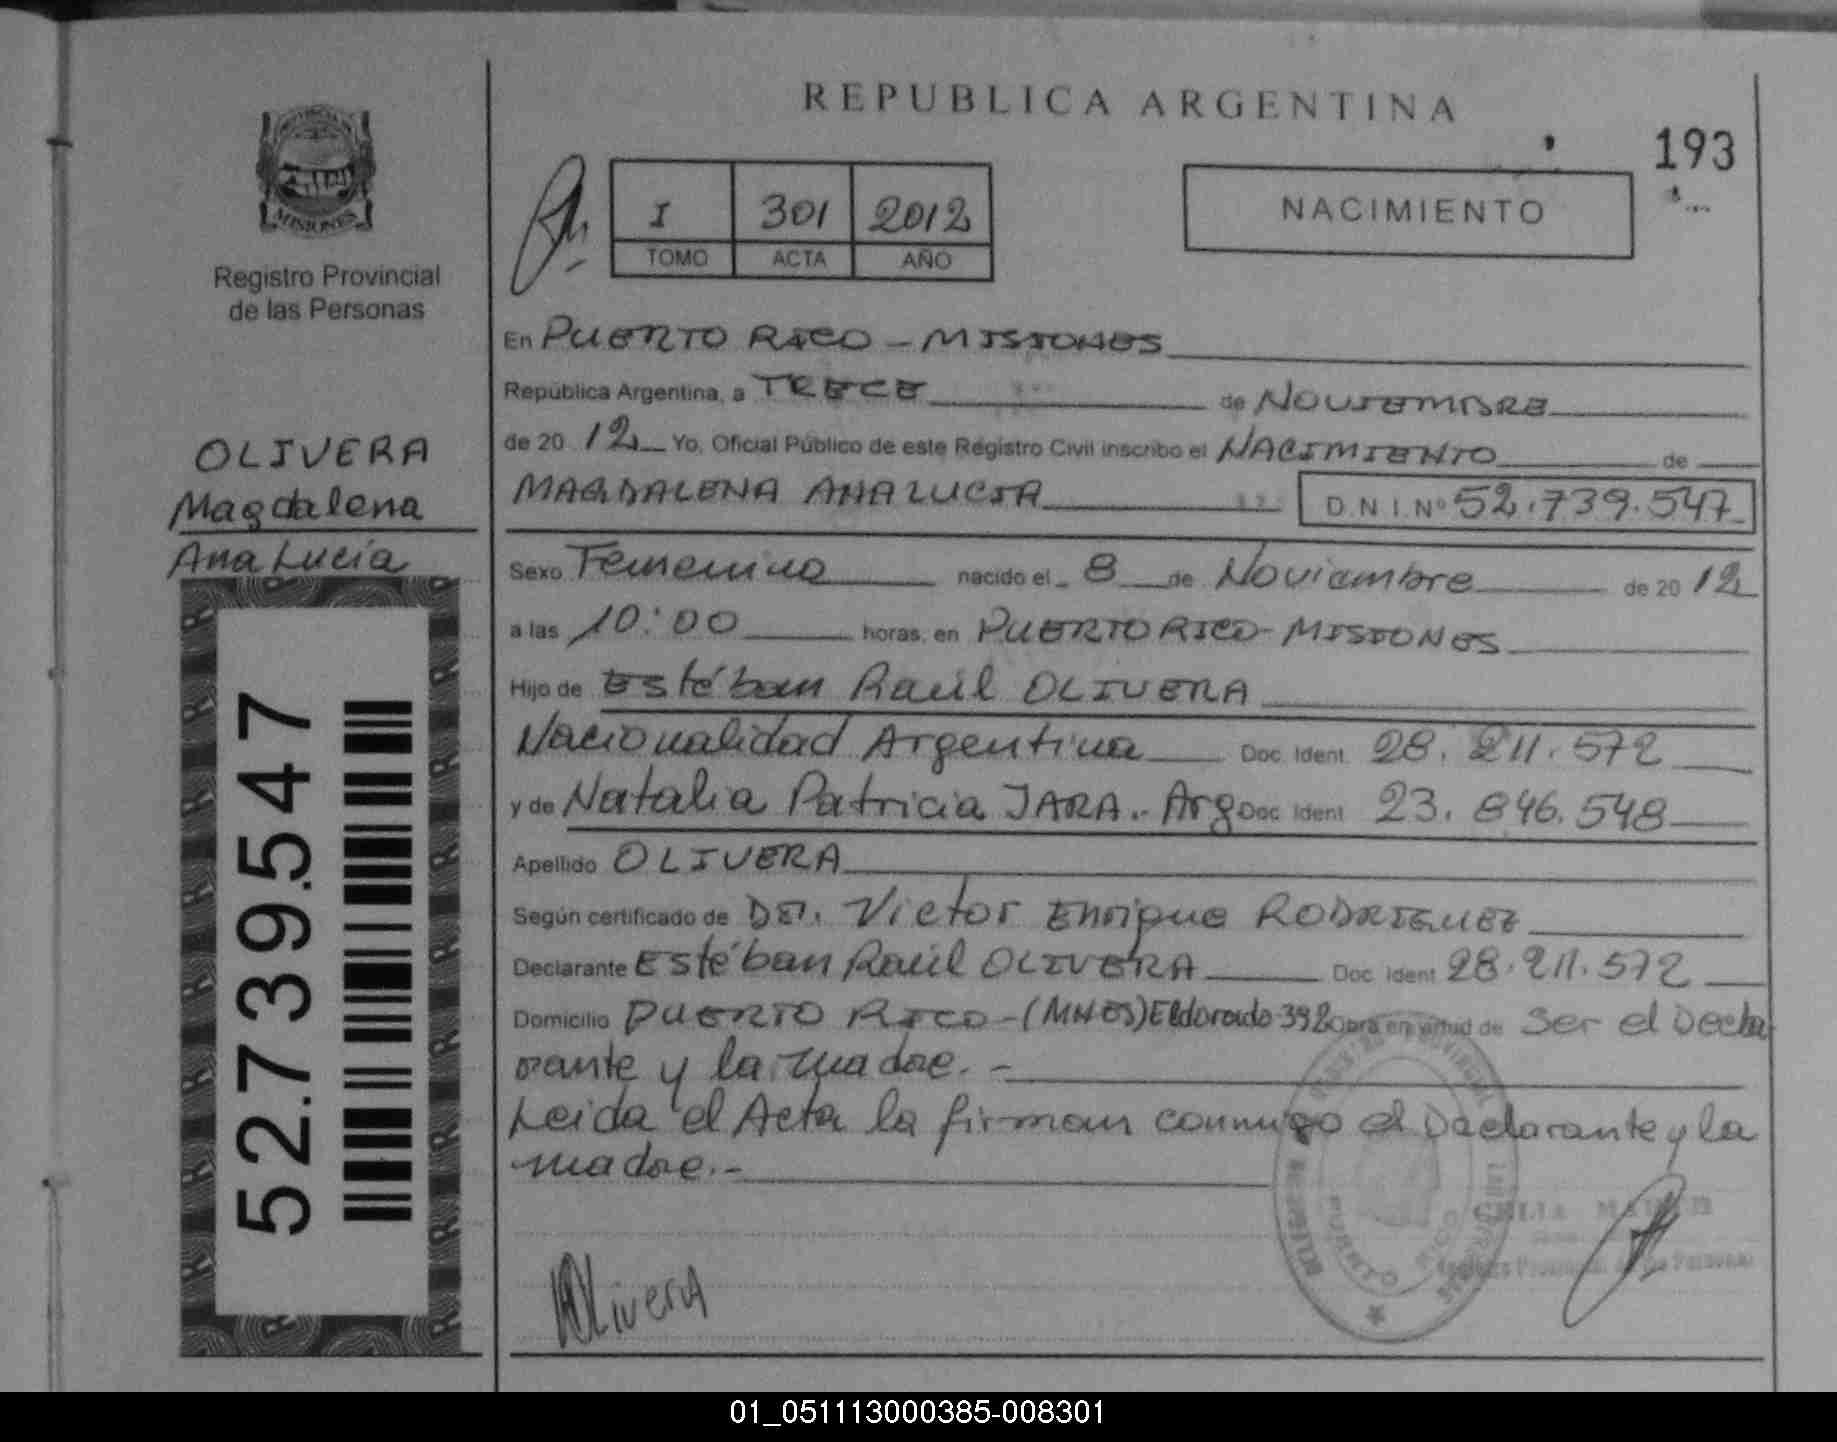 REPUBLICA ARGENTINA
193
MISIONES
Registro Provincial
de las Personas
I 301 2012
TOMO ACTA AÑO
NACIMIENTO
En PUERTO RICO - MISIONES
República Argentina, a TRECE de NOVIEMBRE
de 20 12 Yo, Oficial Público de este Registro Civil inscribo el NACIMIENTO de
MAGDALENA ANA LUCIA D.N.I.Nº 52.739.547
OLIVERA
Magdalena
Ana Lucía
52.739.547
Sexo Femenino nacido el 8 de Noviembre de 20 12
a las 10:00 horas, en PUERTO RICO - MISIONES
Hijo de Estéban Raúl OLIVERA
Nacionalidad Argentina Doc. Ident. 28.211.572
y de Natalia Patricia JARA.- Arg Doc. Ident. 23.846.548
Apellido OLIVERA
Según certificado de DR. Victor Enrique RODRIGUEZ
Declarante Estéban Raúl OLIVERA Doc. Ident. 28.211.572
Domicilio PUERTO RICO - (MNES) Eldorado 392 Obra en virtud de Ser el Decla
rante y la madre.-
Leida el Acta la firman conmigo el Declarante y la
madre.-
PUERTO RICO
Olivera
01_051113000385-008301